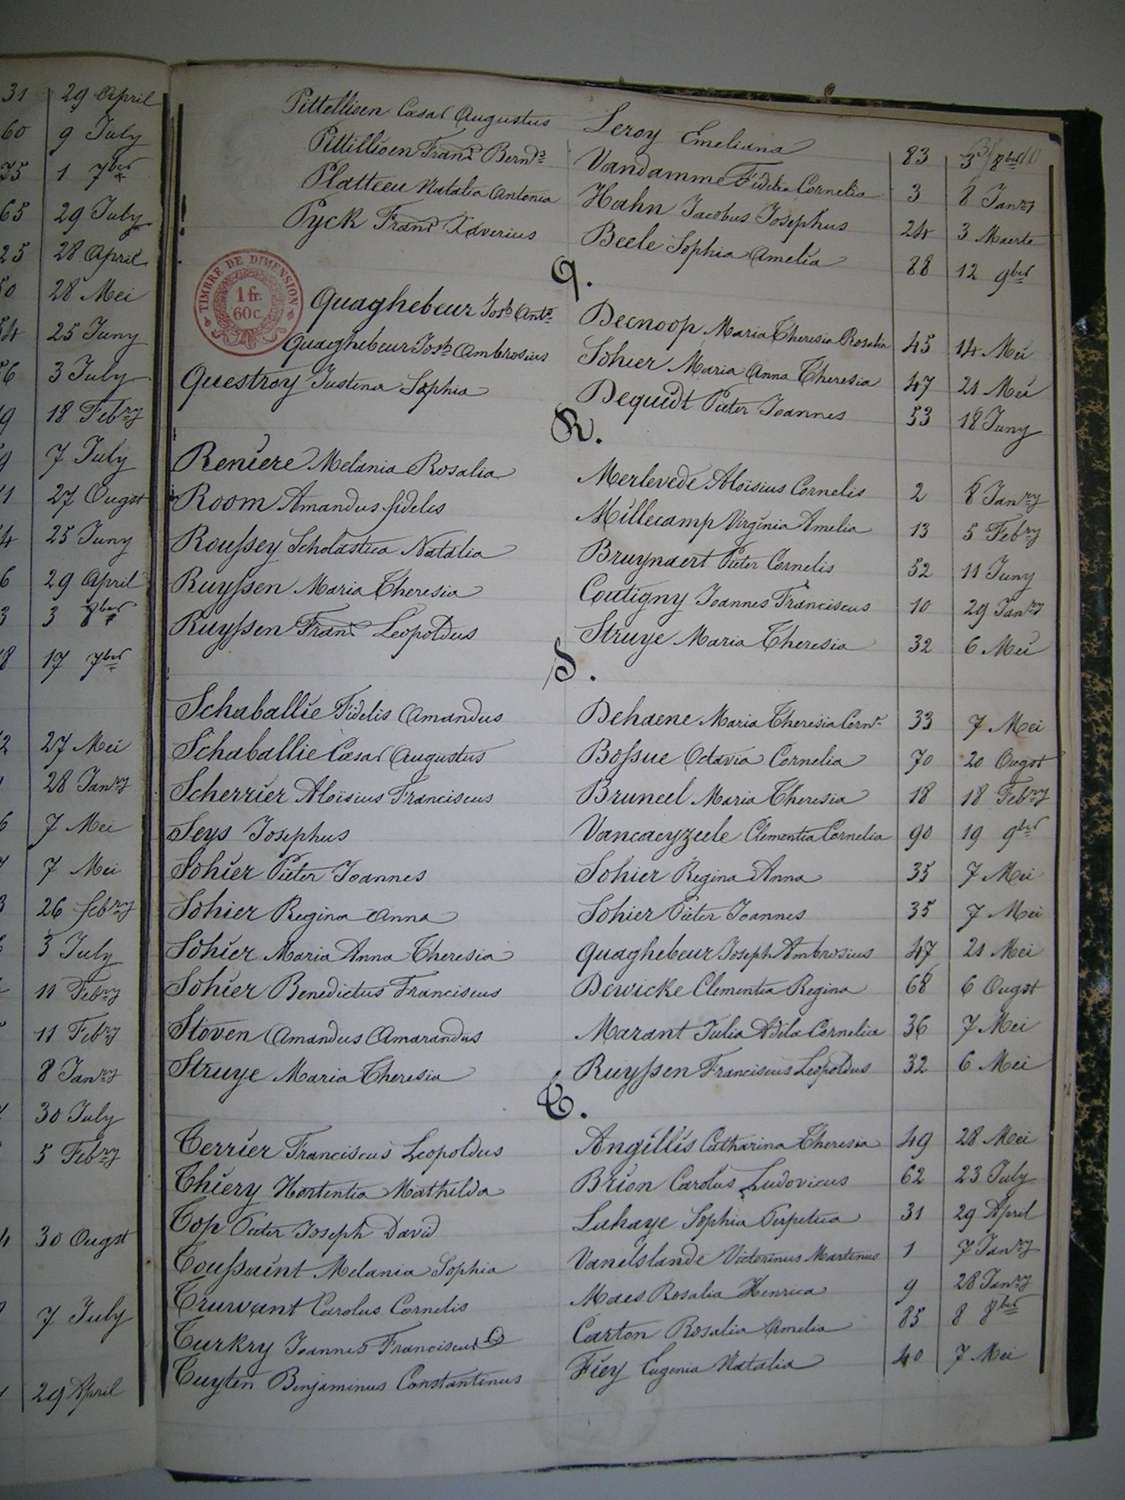 31 29 April
60 9 July
35 1 7ber
65 29 July
25 28 April
50 28 Mei
54 25 Juny
56 3 July
59 18 Febry
59 7 July
71 27 Ougst
54 25 Juny
6 29 April
3 3 8ber
78 17 7ber
2 27 Mei
28 Janry
6 7 Mei
7 Mei
3 26 febry
3 July
11 Febry
11 Febry
8 Janry
30 July
5 Febry
30 Ougst
7 July
29 April
Pittellioen Cæsar Augustus Leroy Emeliana 83 3 8ber
Pittillioen Frans Bernds Vandamme Fidelia Cornelia 3 8 Janry
Platteeu Natalia Antonia Hahn Jacobus Josephus 24 3 Maerte
Pyck Frans Xaverius Beele Sophia Amelia 88 12 9ber
TIMBRE DE DIMENSION
1 fr.
60 c.
Q.
Quaghebeur Josh Ante Decnoop Maria Theresia Rosalia 45 14 Mei
Quaghebeur Josh Ambrosius Sohier Maria Anna Theresia 47 21 Mei
Questroy Justina Sophia Dequidt Pieter Joannes 53 18 Juny
R.
Reniere Melania Rosalia Merlevede Aloïsius Cornelis 2 8 Janry
Room Amandus fidelis Millecamp Virginia Amelia 13 5 Febry
Roussey Scholastica Natalia Bruynaert Pieter Cornelis 52 11 Juny
Ruyssen Maria Theresia Coutigny Joannes Franciscus 10 29 Janry
Ruyssen Frans Leopoldus Struye Maria Theresia 32 6 Mei
S.
Schaballie Fidelis Amandus Dehaene Maria Theresia Corna 33 7 Mei
Schaballie Cæsar Augustus Bossue Octavia Cornelia 70 20 Ougst
Scherrier Aloïsius Franciscus Bruneel Maria Theresia 18 18 Febry
Seys Josephus Vancaeyzeele Clementia Cornelia 90 19 9ber
Sohier Pieter Joannes Sohier Regina Anna 35 7 Mei
Sohier Regina Anna Sohier Pieter Joannes 35 7 Mei
Sohier Maria Anna Theresia Quaghebeur Joseph Ambrosius 47 21 Mei
Sohier Benedictus Franciscus Dewicke Clementia Regina 68 6 Ougst
Stoven Amandus Amarandus Marant Julia Adela Cornelia 36 7 Mei
Struye Maria Theresia Ruyssen Franciscus Leopoldus 32 6 Mei
T.
Terrier Franciscus Leopoldus Angillis Catharina Theresia 49 28 Mei
Thiery Hortentia Mathilda Brion Carolus Ludovicus 62 23 July
Top Pieter Joseph David Lahaye Sophia Perpetua 31 29 April
Toussaint Melania Sophia Vanelslande Victorinus Martinus 1 7 Janry
Truwant Carolus Cornelis Maes Rosalia Henrica 9 28 Janry
Turkry Joannes Franciscus Carton Rosalia Amelia 85 8 8ber
Tuyten Benjaminus Constantinus Fiey Eugenia Natalia 40 7 Mei